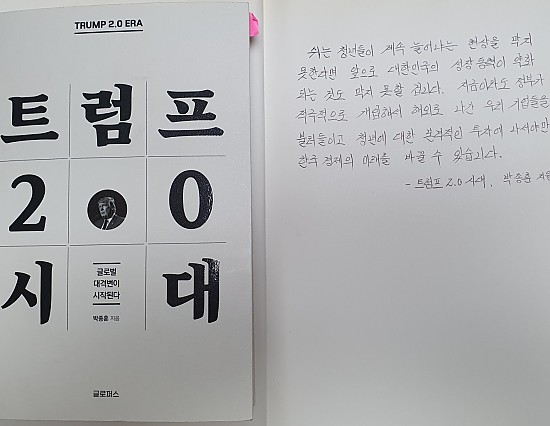 TRUMP 2.0 ERA
트럼프
2.0
시대
글로벌
대격변이
시작된다
박종훈 지음
글로퍼스
쉬는 청년들이 계속 늘어나는 현상을 막지
못한다면 앞으로 대한민국의 성장 동력이 약화
되는 것도 막지 못할 겁니다. 지금이라도 정부가
적극적으로 개입해서 해외로 나간 우리 기업들을
불러들이고 청년에 대한 본격적인 투자에 나서야만
한국 경제의 미래를 바꿀 수 있습니다.
- 트럼프 2.0 시대, 박종훈 지음